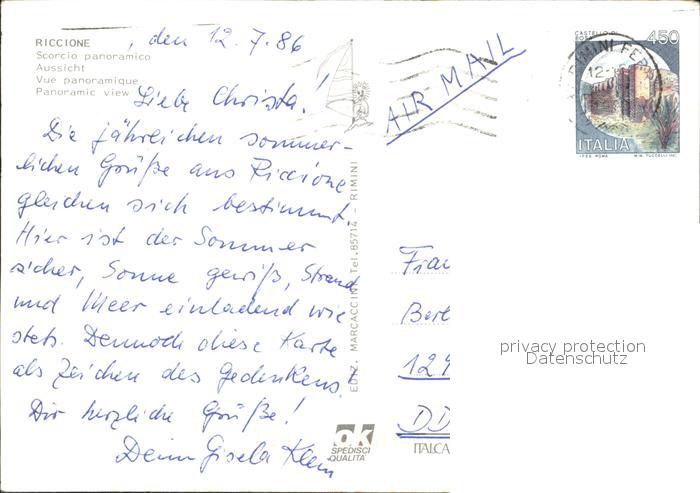 RICCIONE
Scorcio panoramico
Aussicht
Vue panoramique
Panoramic view
, den 12.7.86
Liebe Christa!
Die jährlichen sommer-
lichen Grüße aus Riccione
gleichen sich bestimmt.
Hier ist der Sommer
sicher, Sonne gewiß, Strand
und Meer einladend wie
stets. Dennoch diese Karte
als Zeichen des Gedenkens!
Dir herzliche Grüße!
Deine Gisela Klein
EDIZ. MARCACCINI Tel. 85714 - RIMINI
ok
SPEDISCI
QUALITÀ
AIR MAIL
CASTELLO DI
450
RIMINI FERR
ITALIA
I.P.Z.S. ROMA
Frau
129
DD
ITALCA
privacy protection
Datenschutz